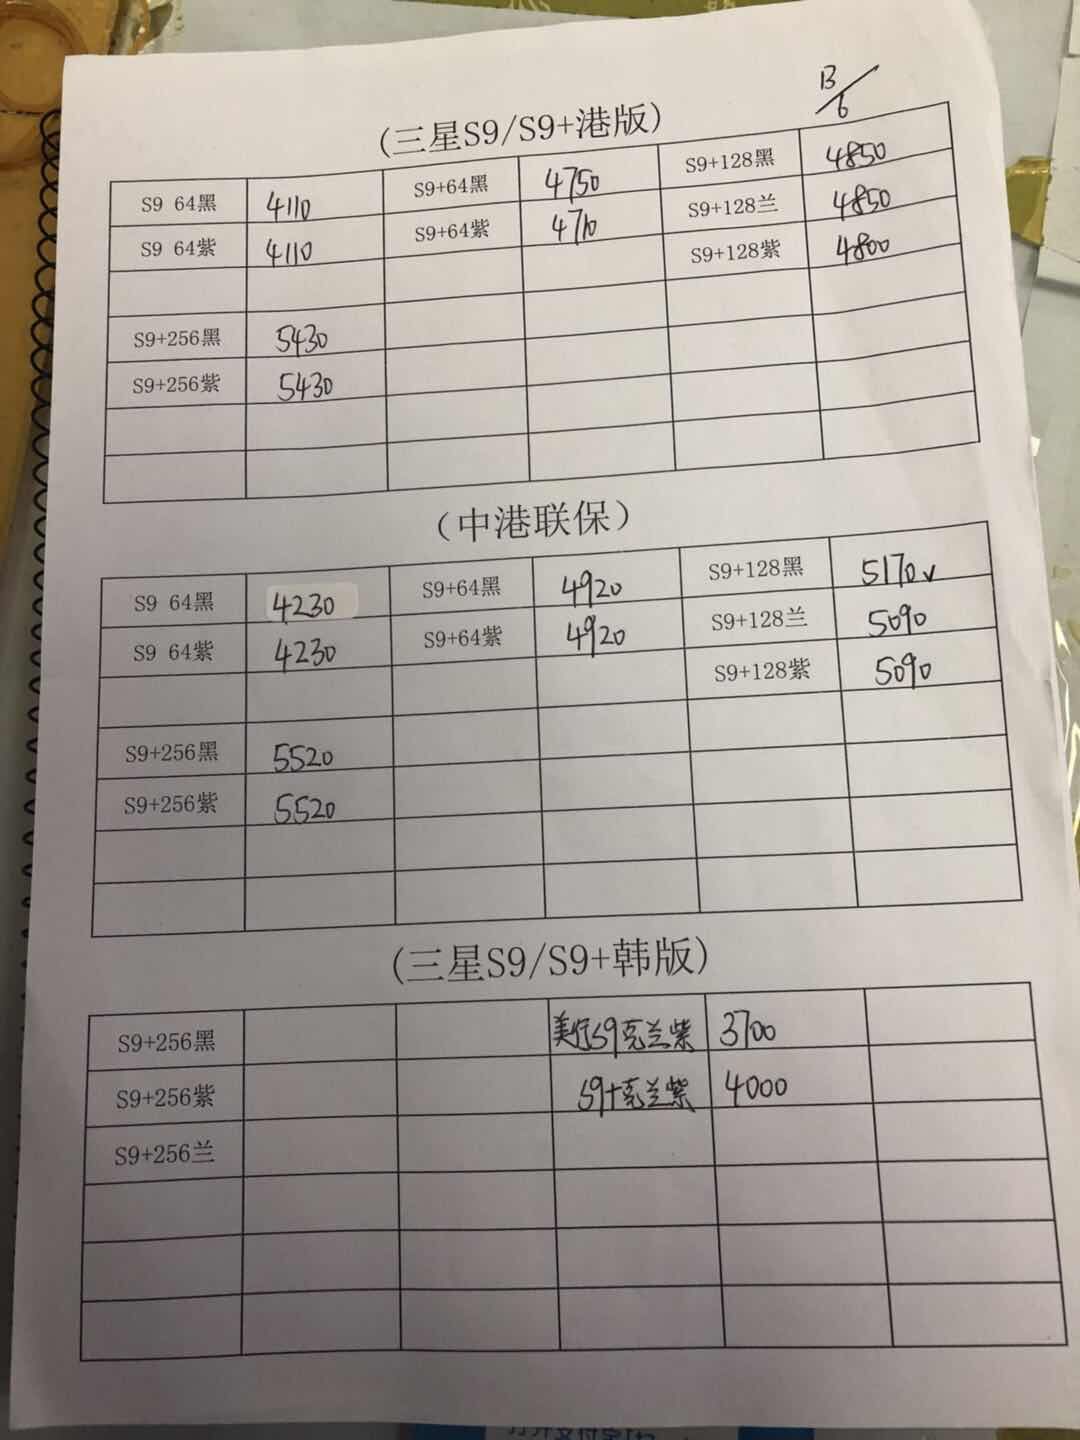 13/6
(三星S9/S9+港版)
S9 64黑 4110 S9+64黑 4750 S9+128黑 4850
S9 64紫 4110 S9+64紫 4710 S9+128兰 4850
S9+128紫 4800
S9+256黑 5430
S9+256紫 5430
(中港联保)
S9 64黑 4230 S9+64黑 4920 S9+128黑 5170v
S9 64紫 4230 S9+64紫 4920 S9+128兰 5090
S9+128紫 5090
S9+256黑 5520
S9+256紫 5520
(三星S9/S9+韩版)
S9+256黑 S9克兰紫 3700
S9+256紫 S9+克兰紫 4000
S9+256兰